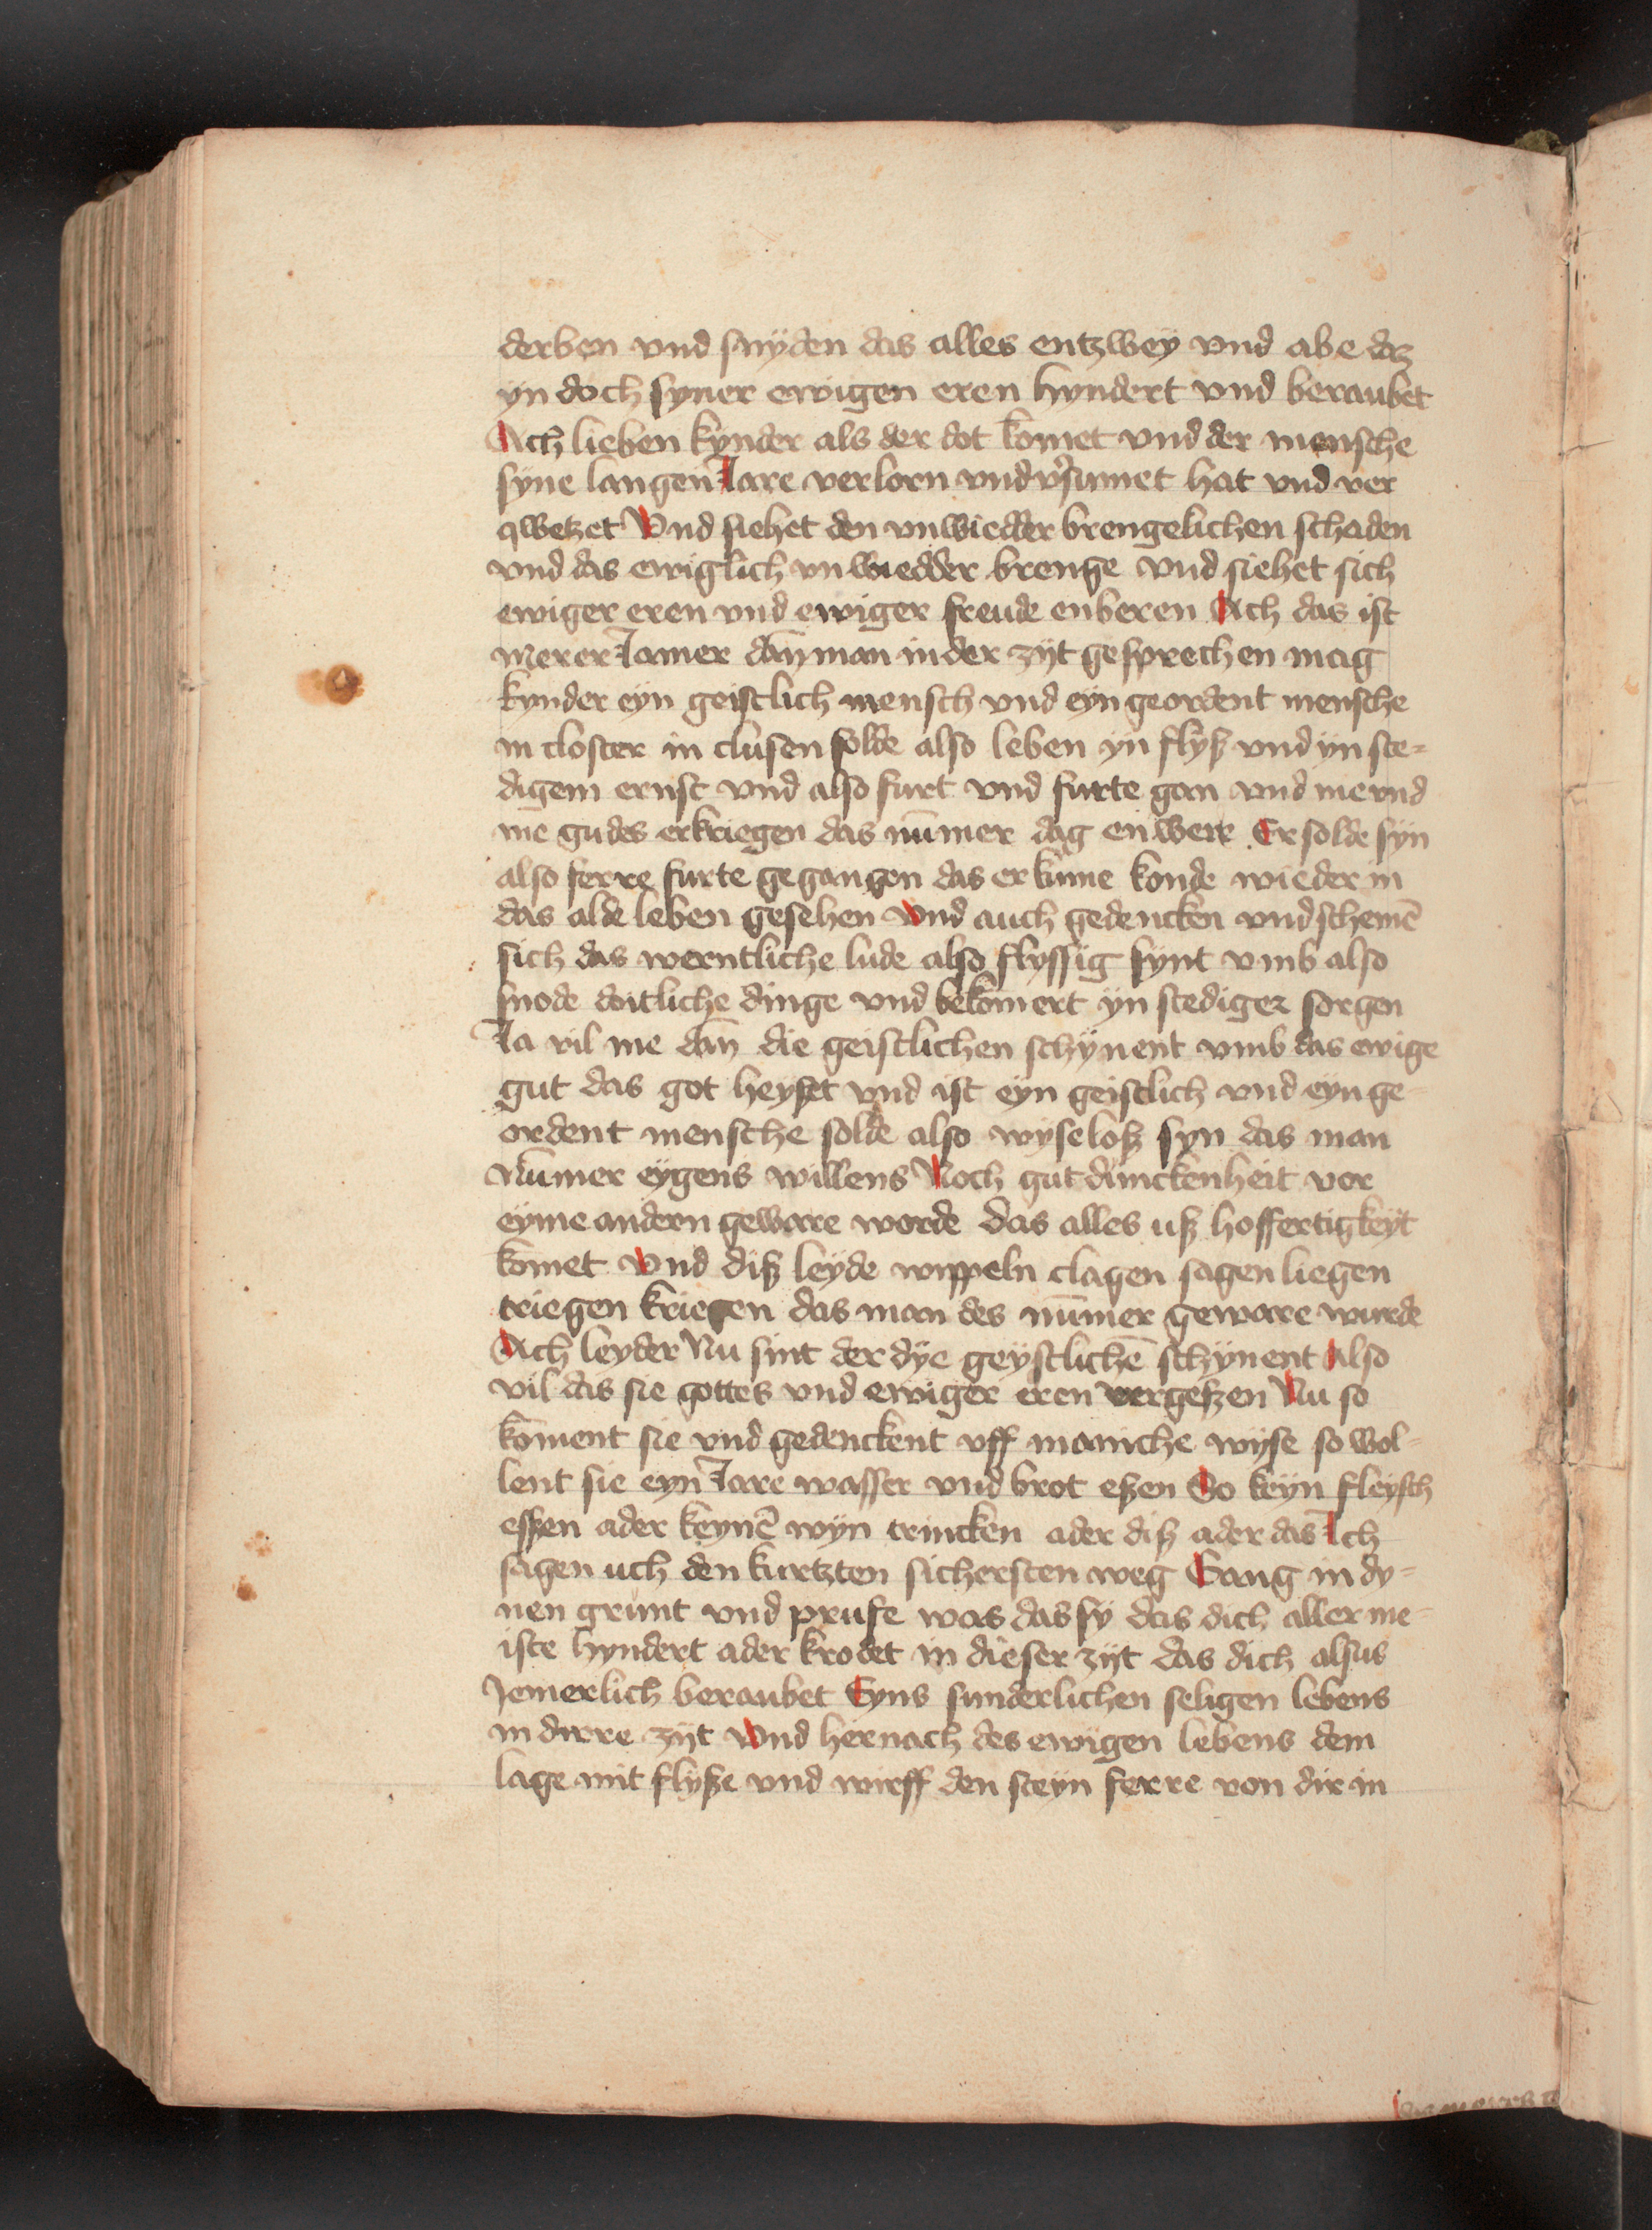 derben vnd snyden das alles entzwey vnd abe daz
yn doch syner ewigen eren hyndert vnd beraubet
Ach lieben kynder als der dot komet vnd der mensche
syne langen Jare verlorn vnd v̓sumet hat vnd ver
qwetzet Vnd siehet den vnwiedder brengelichen schaden
vnd das ewiglich vnwiedder brenge vnd siehet sich
ewiger eren vnd ewiger freude enberen Ach das ist
merer Jamer dan̄ man in der zyt gesprechen mag
kynder eyn geistlich mensch vnd eyn geordent mensche
in closter in clusen solde also leben yn flyß vnd yn ste-
digem ernst vnd also furt vnd furte gan vnd me vnd
me gudes erkriegen das nūmer dag en were Er solde syn
also ferre furte gegangen das er kume konde wieder in
das alde leben gesehen Vnd auch gedencken vnd schemē
sich das werntliche lude also flyssig synt vmb also
snode dotliche dinge vnd bekōmert yn stediger sorgen
Ja vil me dan̄ die geistlichen schynent vmb das ewige
gut das got heyset vnd ist eyn geistlich vnd eyn ge-
ordent mensche solde also wyseloß syn das man
Nūmer eygens willens Noch gutdunckenheit vor
eyme andern geware worde das alles uß hoffertigkeyt
komet Vnd diß leyde wippeln clagen sagen liegen
triegen kriegen das man des nūmer geware wurde
Ach leyder Nu sint der dye geystlichē schynent Also
vil das sie gottes vnd ewiger eren vergeßen Nu so
kōment sie vnd gedenckent vff maniche wyse so wol-
lent sie eyn Jare wasser vnd brot eßen So keyn fleysch
essen ader keynē wyn trincken ader diß ader das Ich
sagen uch den kurtzten sichersten weg Gang in dy-
nen grunt vnd prufe was das sy das dich aller me-
iste hyndert ader krodet in dieser zyt das dich alsus
Jemerlich beraubet Eyns sunderlichen seligen lebens
in dirre zyt Vnd hernach des ewigen lebens dem
lage mit flyße vnd wirff den steyn ferre von dir in